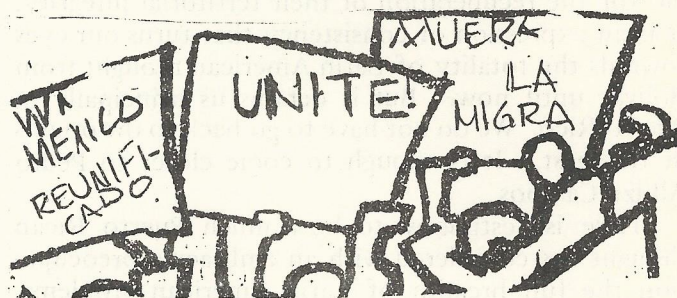 VIVA
MEXICO
REUNIFI
CADO.
UNITE!
MUERA
LA
MIGRA